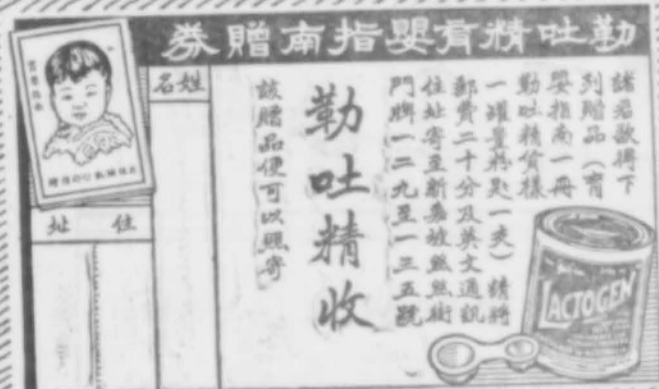 勒吐精育嬰指南贈券
諸君欲得下
列贈品（育
嬰指南一冊
勒吐精貨樣
一罐量粉匙一支）請將
郵費二十分及英文通訊
住址寄至新嘉坡絲絲街
門牌一二九至一三五號
勒吐精收
該贈品便可以照寄
姓名
住址
LACTOGEN